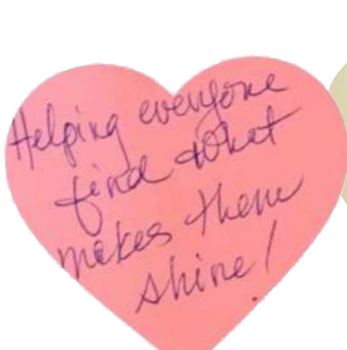 Helping everyone
find what
makes them
shine!